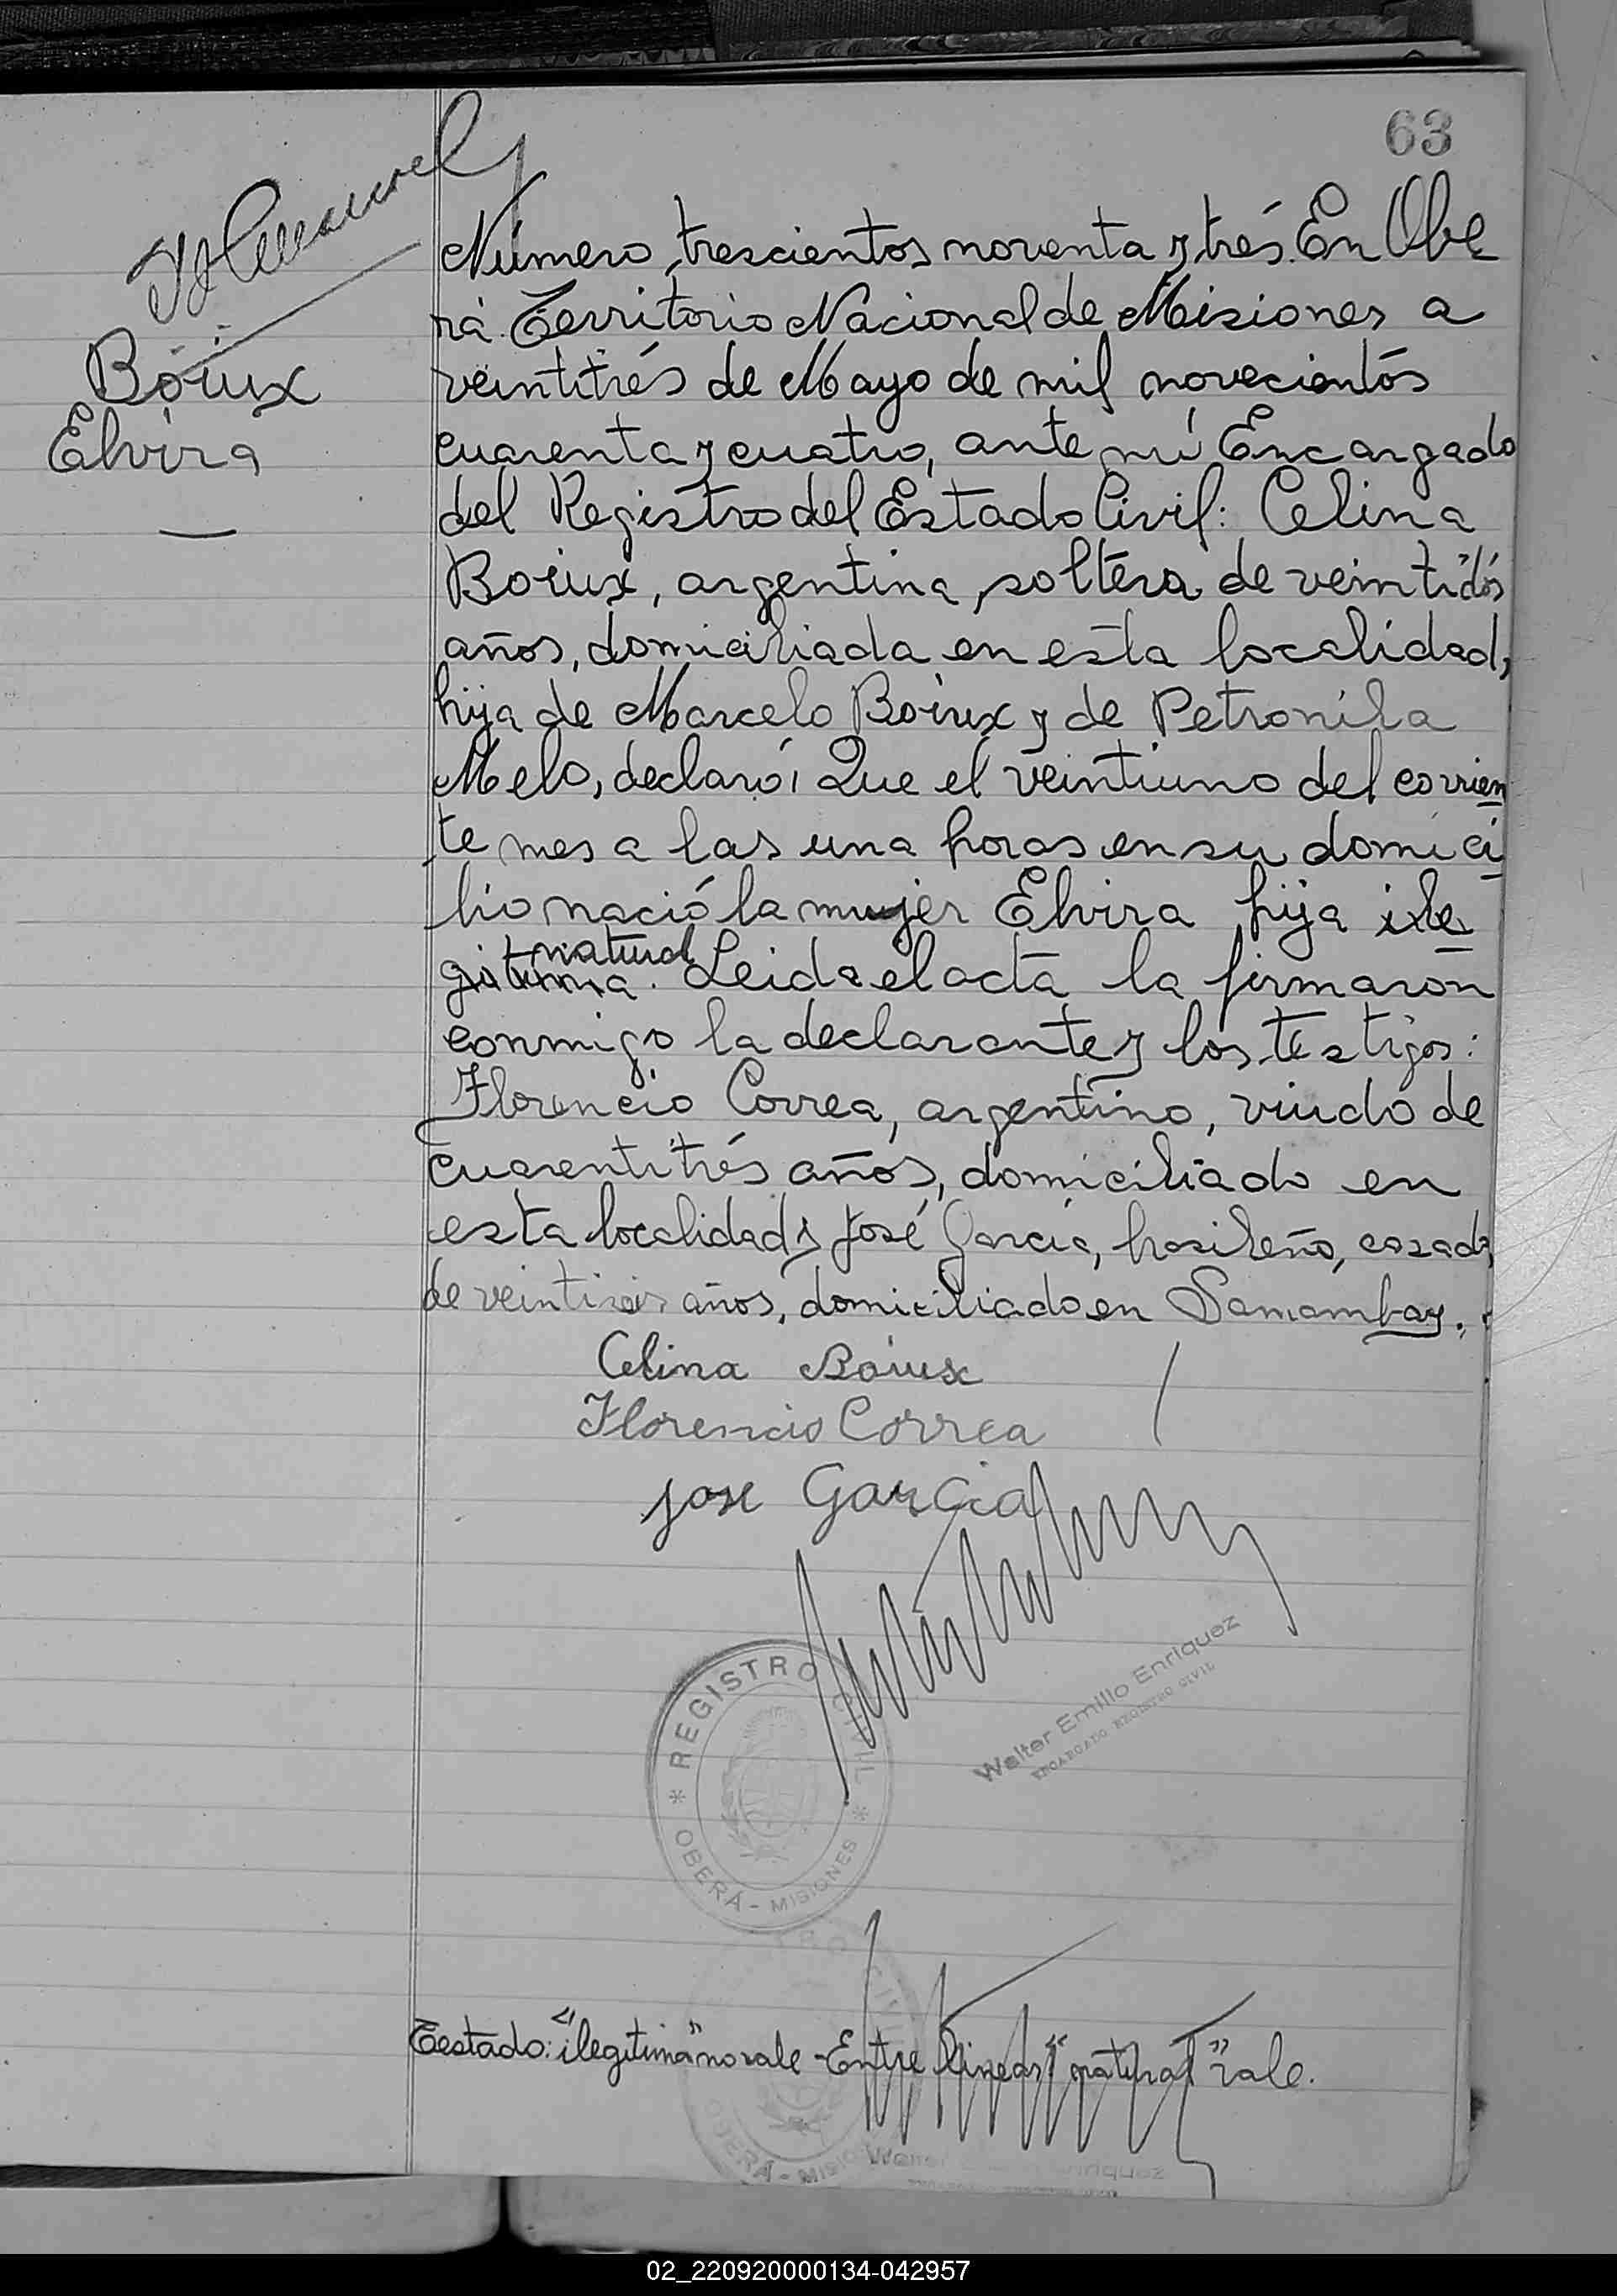 63
Boiux
Elvira
Número trescientos noventa y trés. En Obe
rá Territorio Nacional de Misiones a
veintitrés de Mayo de mil novecientos
cuarenta y cuatro, ante mí Encargado
del Registro del Estado Civil: Celina
Boiux, argentina, soltera de veintidós
años, domiciliada en esta localidad,
hija de Marcelo Boiux y de Petronila
Melo, declaró: Que el veintiuno del corrien
te mes a las una horas en su domici
lio nació la mujer Elvira hija ile
natural
gitima. Leida el acta la firmaron
conmigo la declarante y los testigos:
Florencio Correa, argentino, viudo de
cuarentitrés años, domiciliado en
esta localidad y José García, brasileño, casado
de años, domiciliado en Samambay.
Celina Boiux
Florencio Correa
jose Garcia
REGISTRO CIVIL
OBERÁ - MISIONES
Walter Emilio Enriquez
ENCARGADO REGISTRO CIVIL
Testado: "ilegitima" no vale - Entre lineas: "natural" vale.
OBERÁ - MISIO
02_220920000134-042957